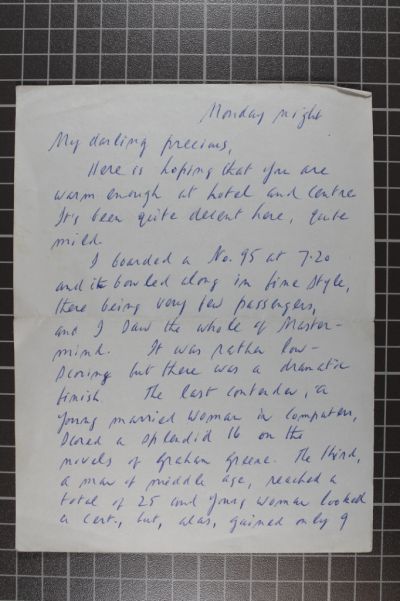 Monday night
My darling precious,
Here is hoping that you are
warm enough at hotel and centre
It's been quite decent here, quite
mild.
I boarded a No. 95 at 7.20
and it bowled along in fine style,
there being very few passengers,
and I saw the whole of Master-
mind. It was rather low-
scoring but there was a dramatic
finish The last contender, a
young married woman in computers,
scored a splendid 16 on the
novels of Graham Greene. The third,
a man of middle age, reached a
total of 25 and young woman looked
a cert., but, alas, gained only 9